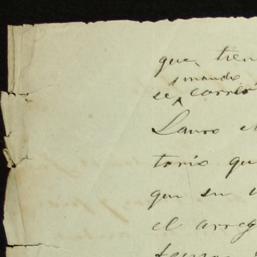 que tien
simando
se corrió
Lauro e
torio qu
que su
el arreg